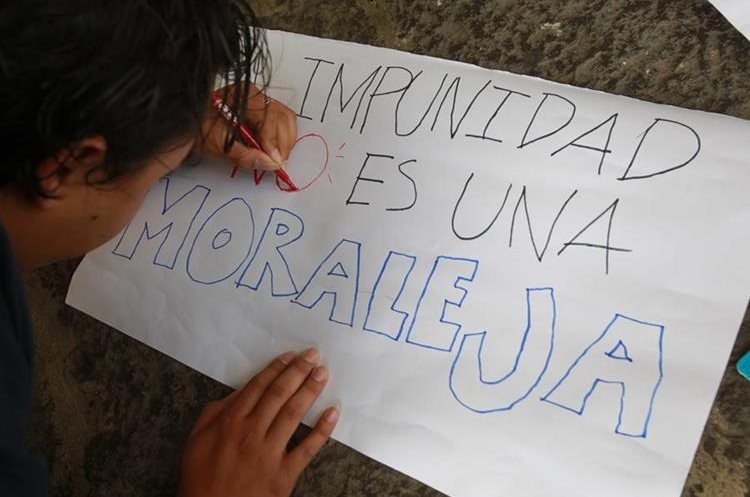 IMPUNIDAD
NO ES UNA
MORALEJA